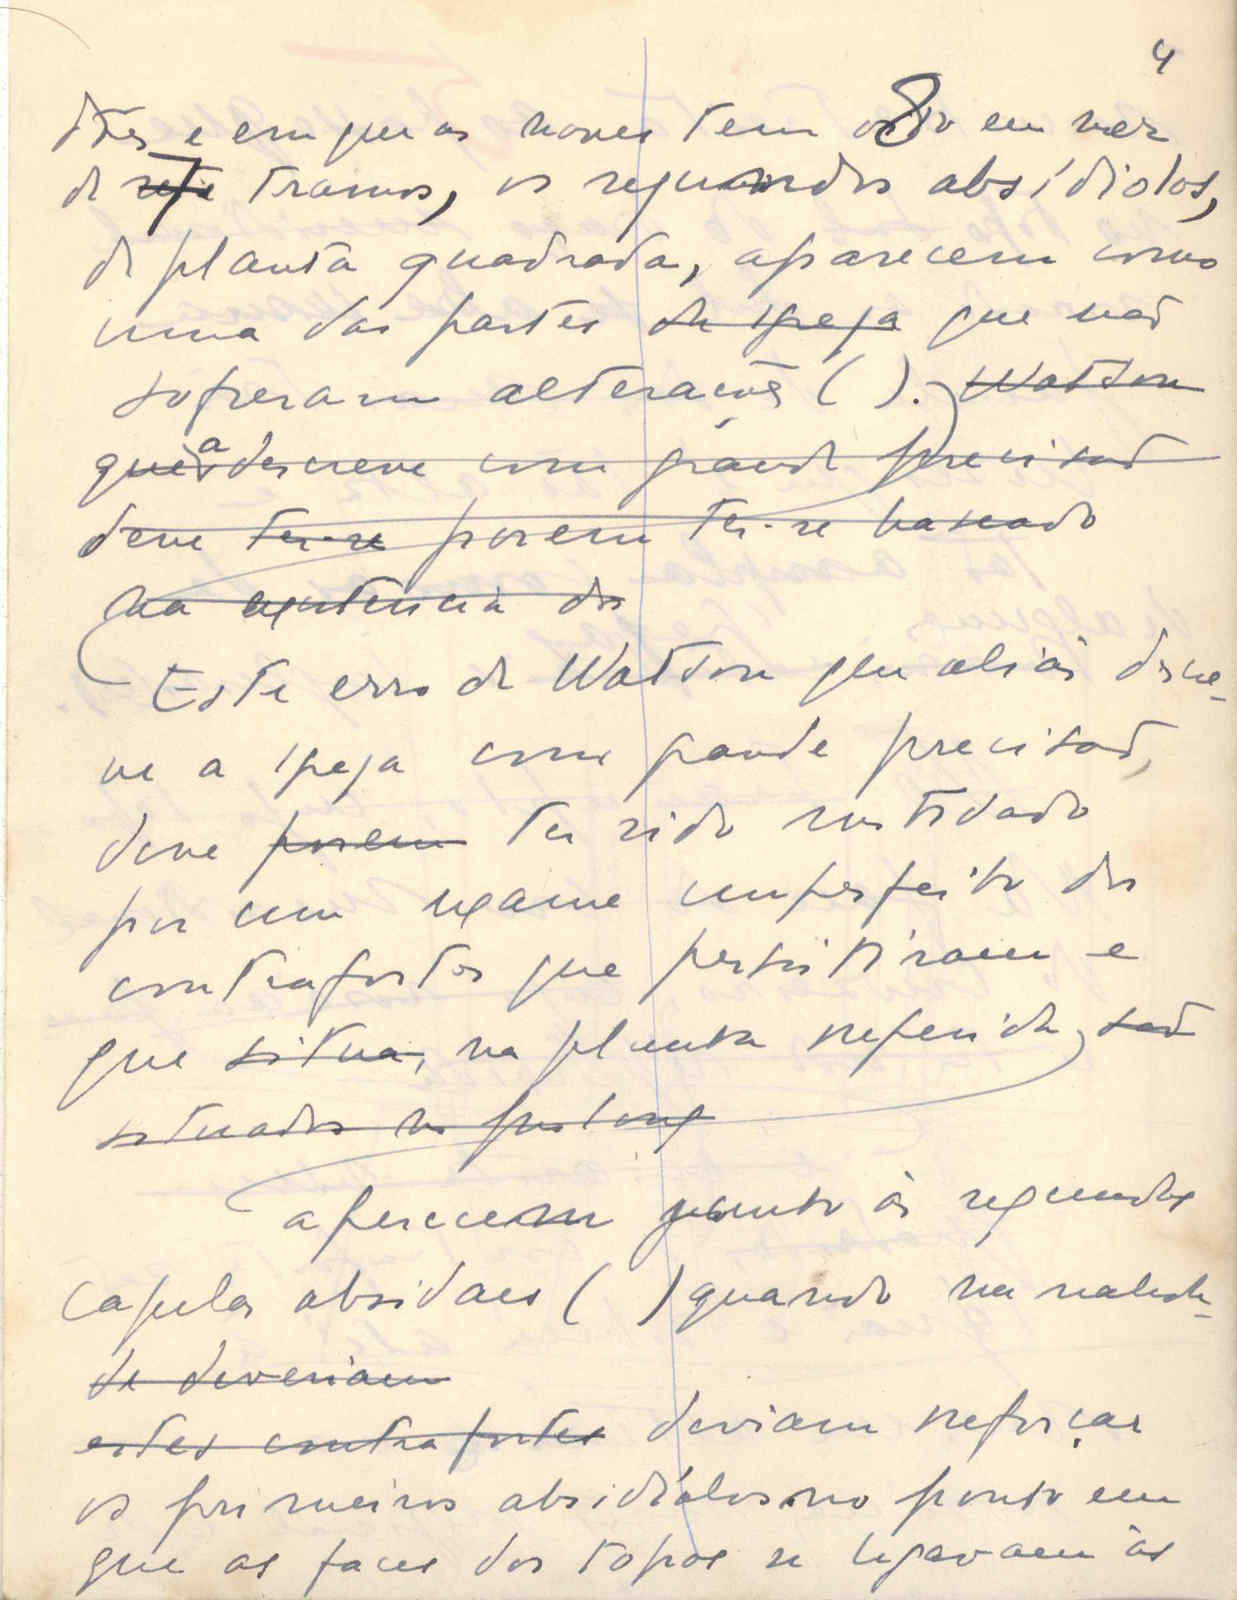 4
e em que as naves tem 8 em vez
de sete tramos, os segundos absidiolos,
de planta quadrada, aparecem como
uma das partes da igreja que não
sofreram alterações ( ). Watson
que a descreve com grande precisão
deve ter-se porem ter-se baseado
na existencia dos
Este erro de Watson que aliás descre-
ve a igreja com grande precisão,
deve porem ter sido
por um exame imperfeito dos
contrafortes que persistiram e
que situa, na planta referida, são
situados no prolong
aparecem junto às segundas
capelas absidaes ( ) quando na realida-
de deveriam
estes contrafortes deviam reforçar
os primeiros absidíolos no ponto em
que as faces dos topos se ligavam às